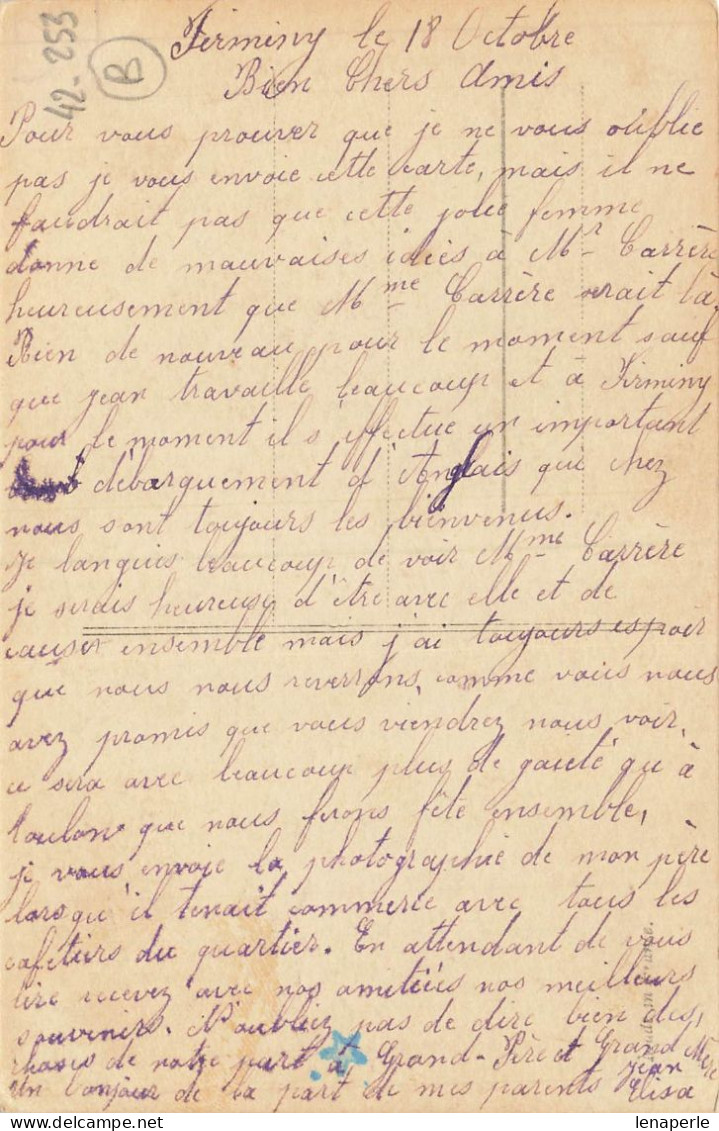 42-253
B
Firminy le 18 Octobre
Bien Chers Amis
Pour vous prouver que je ne vous oublie
pas je vous envoie cette carte, mais il ne
faudrait pas que cette jolie femme
donne de mauvaises idées à Mr Carrère
heureusement que Mme Carrère serait là,
Rien de nouveau pour le moment sauf
que Jean travaille beaucoup et à Firminy
pour le moment il s'effectue un important
débarquement d'Anglais qui chez
nous sont toujours les bienvenus.
Je languis beaucoup de voir Mme Carrère
je serais heureuse d'être avec elle et de
causer ensemble mais j'ai toujours espoir
que nous nous reverrons, comme vous nous
avez promis que vous viendrez nous voir,
ce sera avec beaucoup plus de gaieté qu'à
Toulon que nous ferons fête ensemble,
je vous envoie la photographie de mon père
lorsqu'il tenait commerce avec tous les
cafetiers du quartier. En attendant de vous
lire recevez avec nos amitiés nos meilleurs
souvenirs. N'oubliez pas de dire bien des
choses de notre part à Grand-Père et Grand Mère
Un bonjour de la part de mes parents Jean
Elisa
lenaperle